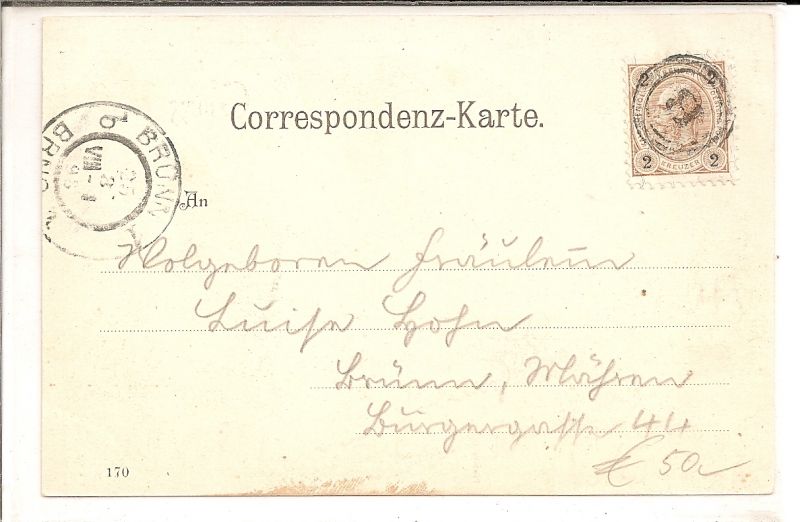 Correspondenz-Karte.
2 KREUZER 2
BRÜNN
An
Wolgeboren Fräulein
Luise Hohn
Brünn, Mähren
Bürgergasse 44
€ 50
170